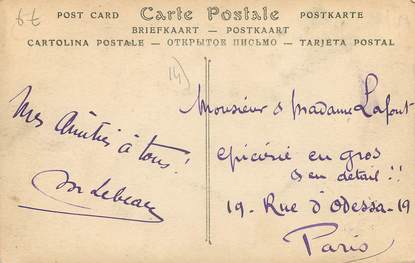 POST CARD Carte Postale POSTKARTE
BRIEFKAART — POSTKAART
CARTOLINA POSTALE — ОТКРЫТОЕ ПИСЬМО — TARJETA POSTAL
Mes Amitiés à tous!
Lebeau
Monsieur & Madame Lafont
epicérie en gros
& en détail!!
19. Rue d'Odessa-19
Paris